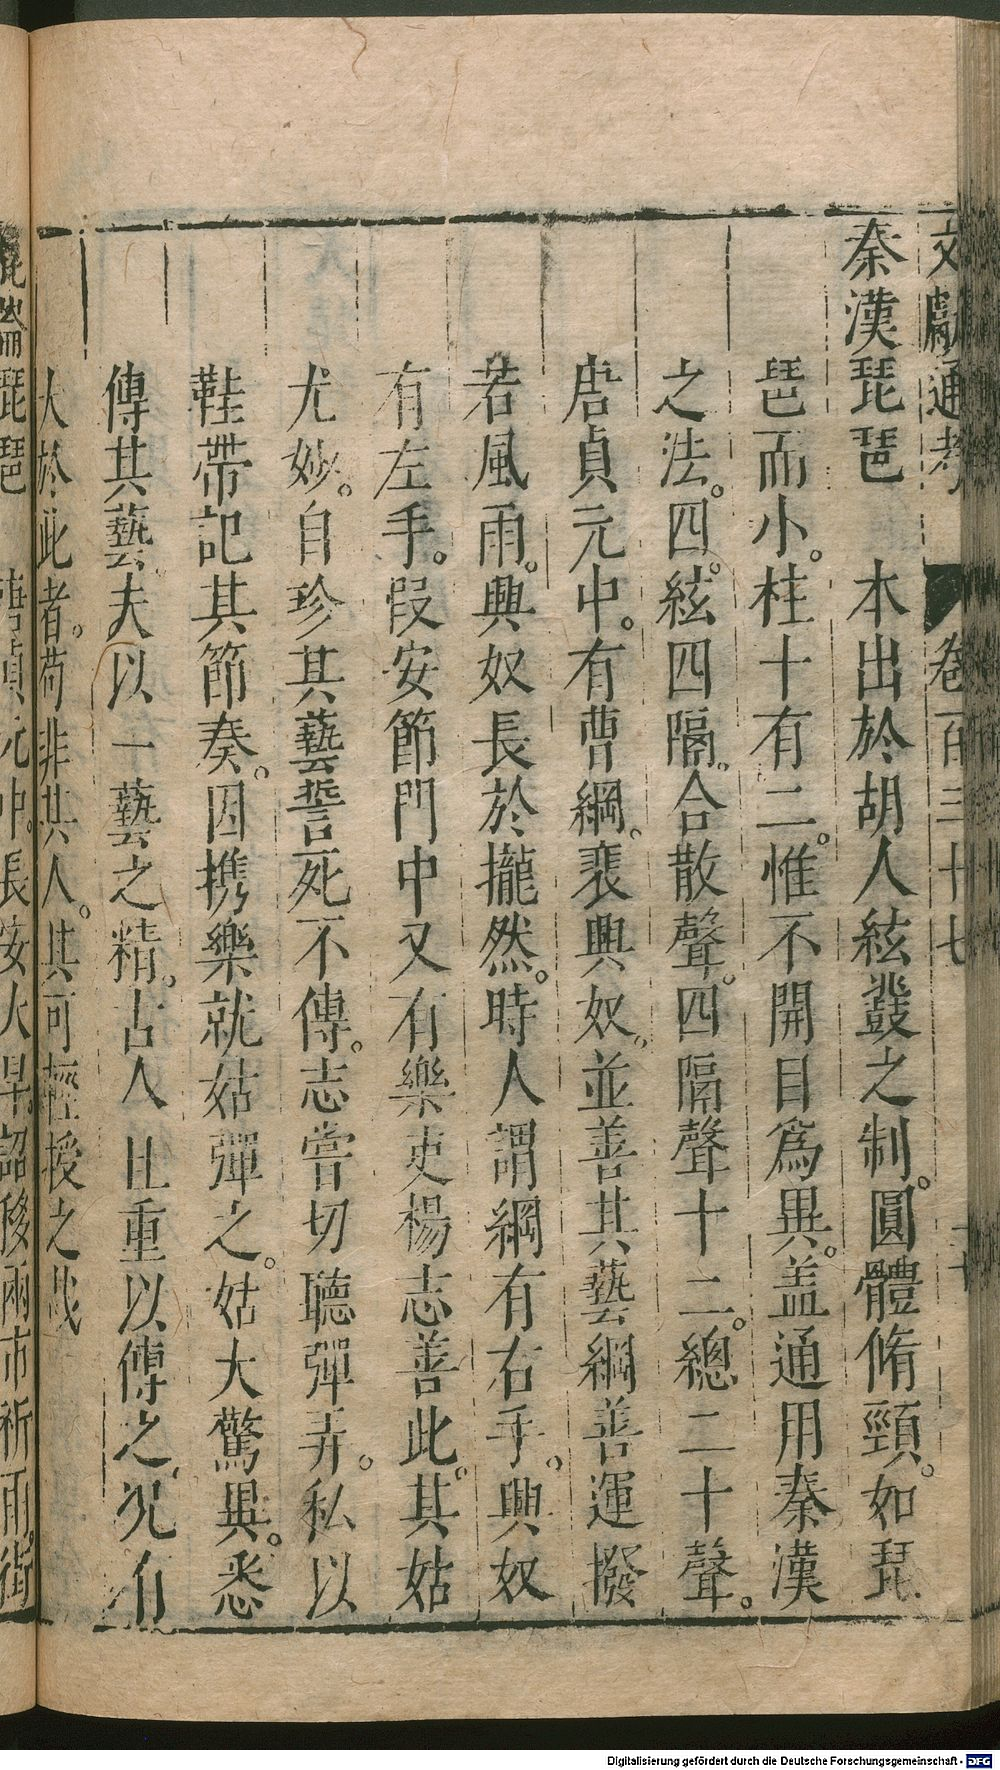 文獻通考 卷一百三十七
秦漢琵琶 本出於胡人絃鼗之制。圓體脩頸。如琵
琶而小。柱十有二。惟不開目爲異。盖通用秦漢
之法。四絃四隔。合散聲。四隔聲十二。總二十聲。
唐貞元中。有曹綱。裴興奴。並善其藝綱善運撥
若風雨。興奴長於攏然。時人謂綱有右手。興奴
有左手。叚安節門中又有樂吏楊志善此。其姑
尤妙。自珍其藝誓死不傳。志嘗切聽彈弄。私以
鞋帶記其節奏。因携樂就姑彈之。姑大驚異。悉
傳其藝。夫以一藝之精。古人且重以傳之。况有
大於此者。苟非其人。其可輕授之哉
琵琶 唐貞元中。長安大旱。詔移兩市祈雨。街
Digitalisierung gefördert durch die Deutsche Forschungsgemeinschaft - DFG